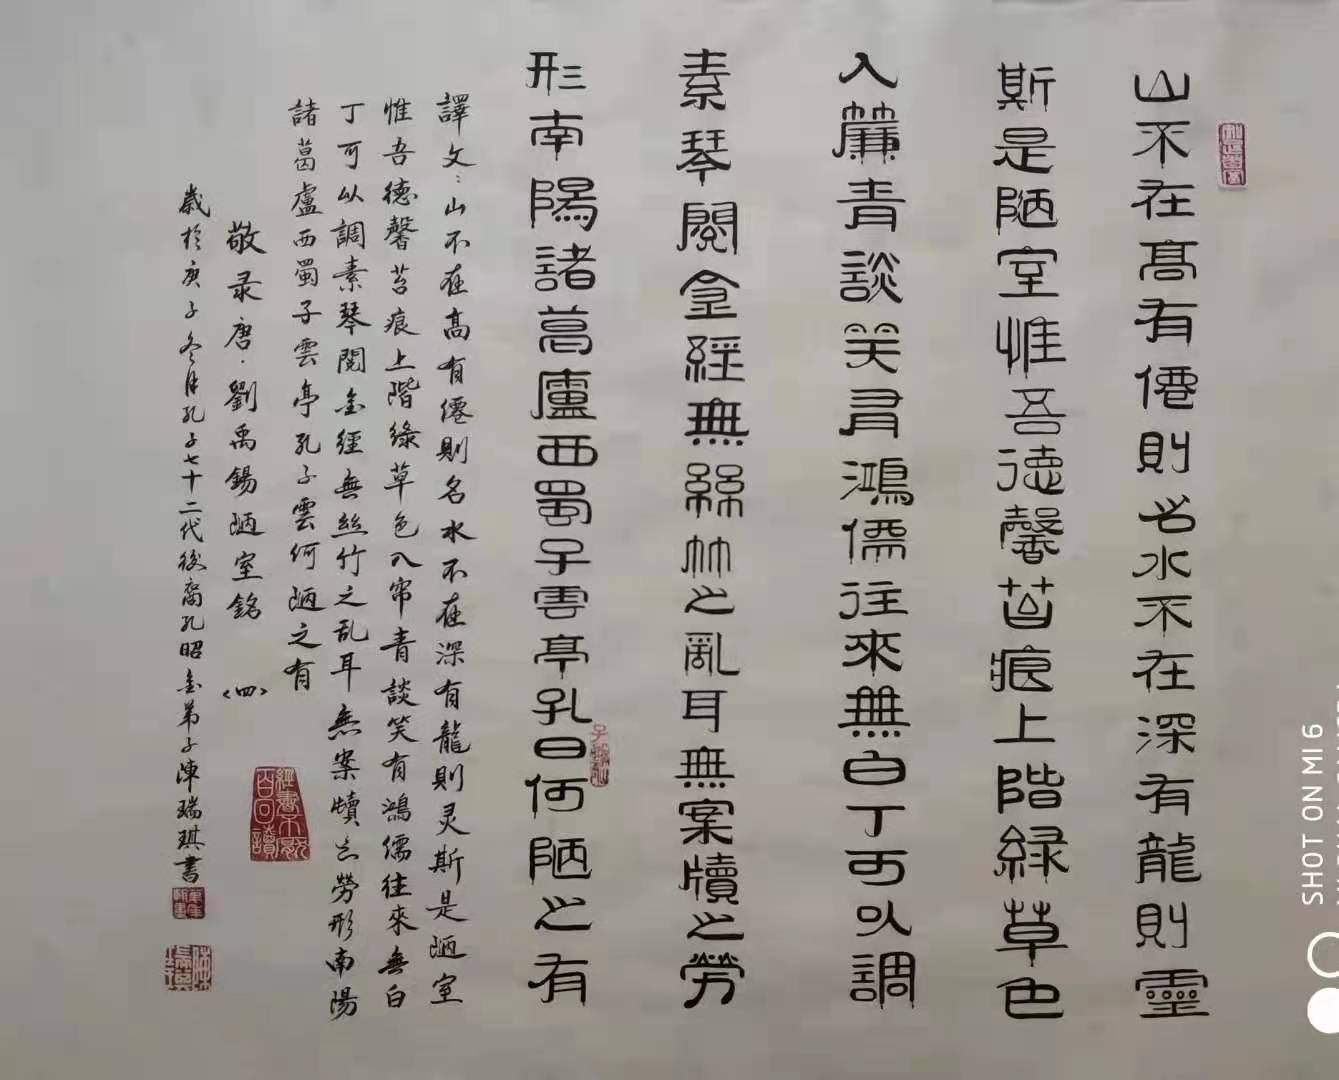 山不在髙有僊則名水不在深有龍則靈
斯是陋室惟吾德馨苔痕上階緑草色
入簾青談笑有鴻儒往來無白丁可以調
素琴閱金經無絲竹之亂耳無案牘之勞
形南陽諸葛廬西蜀子雲亭孔曰何陋之有
譯文:山不在高有僊則名水不在深有龍則灵斯是陋室
惟吾德馨苔痕上階綠草色入帘青談笑有鴻儒往來無白
丁可以調素琴閱金經無絲竹之乱耳無案牘之勞形南陽
諸葛盧西蜀子雲亭孔子雲何陋之有
敬录唐·劉禹錫陋室銘 <四>
歲於庚子冬月孔子七十二代後裔孔昭金弟子陳瑞琪書
SHOT ON MI 6